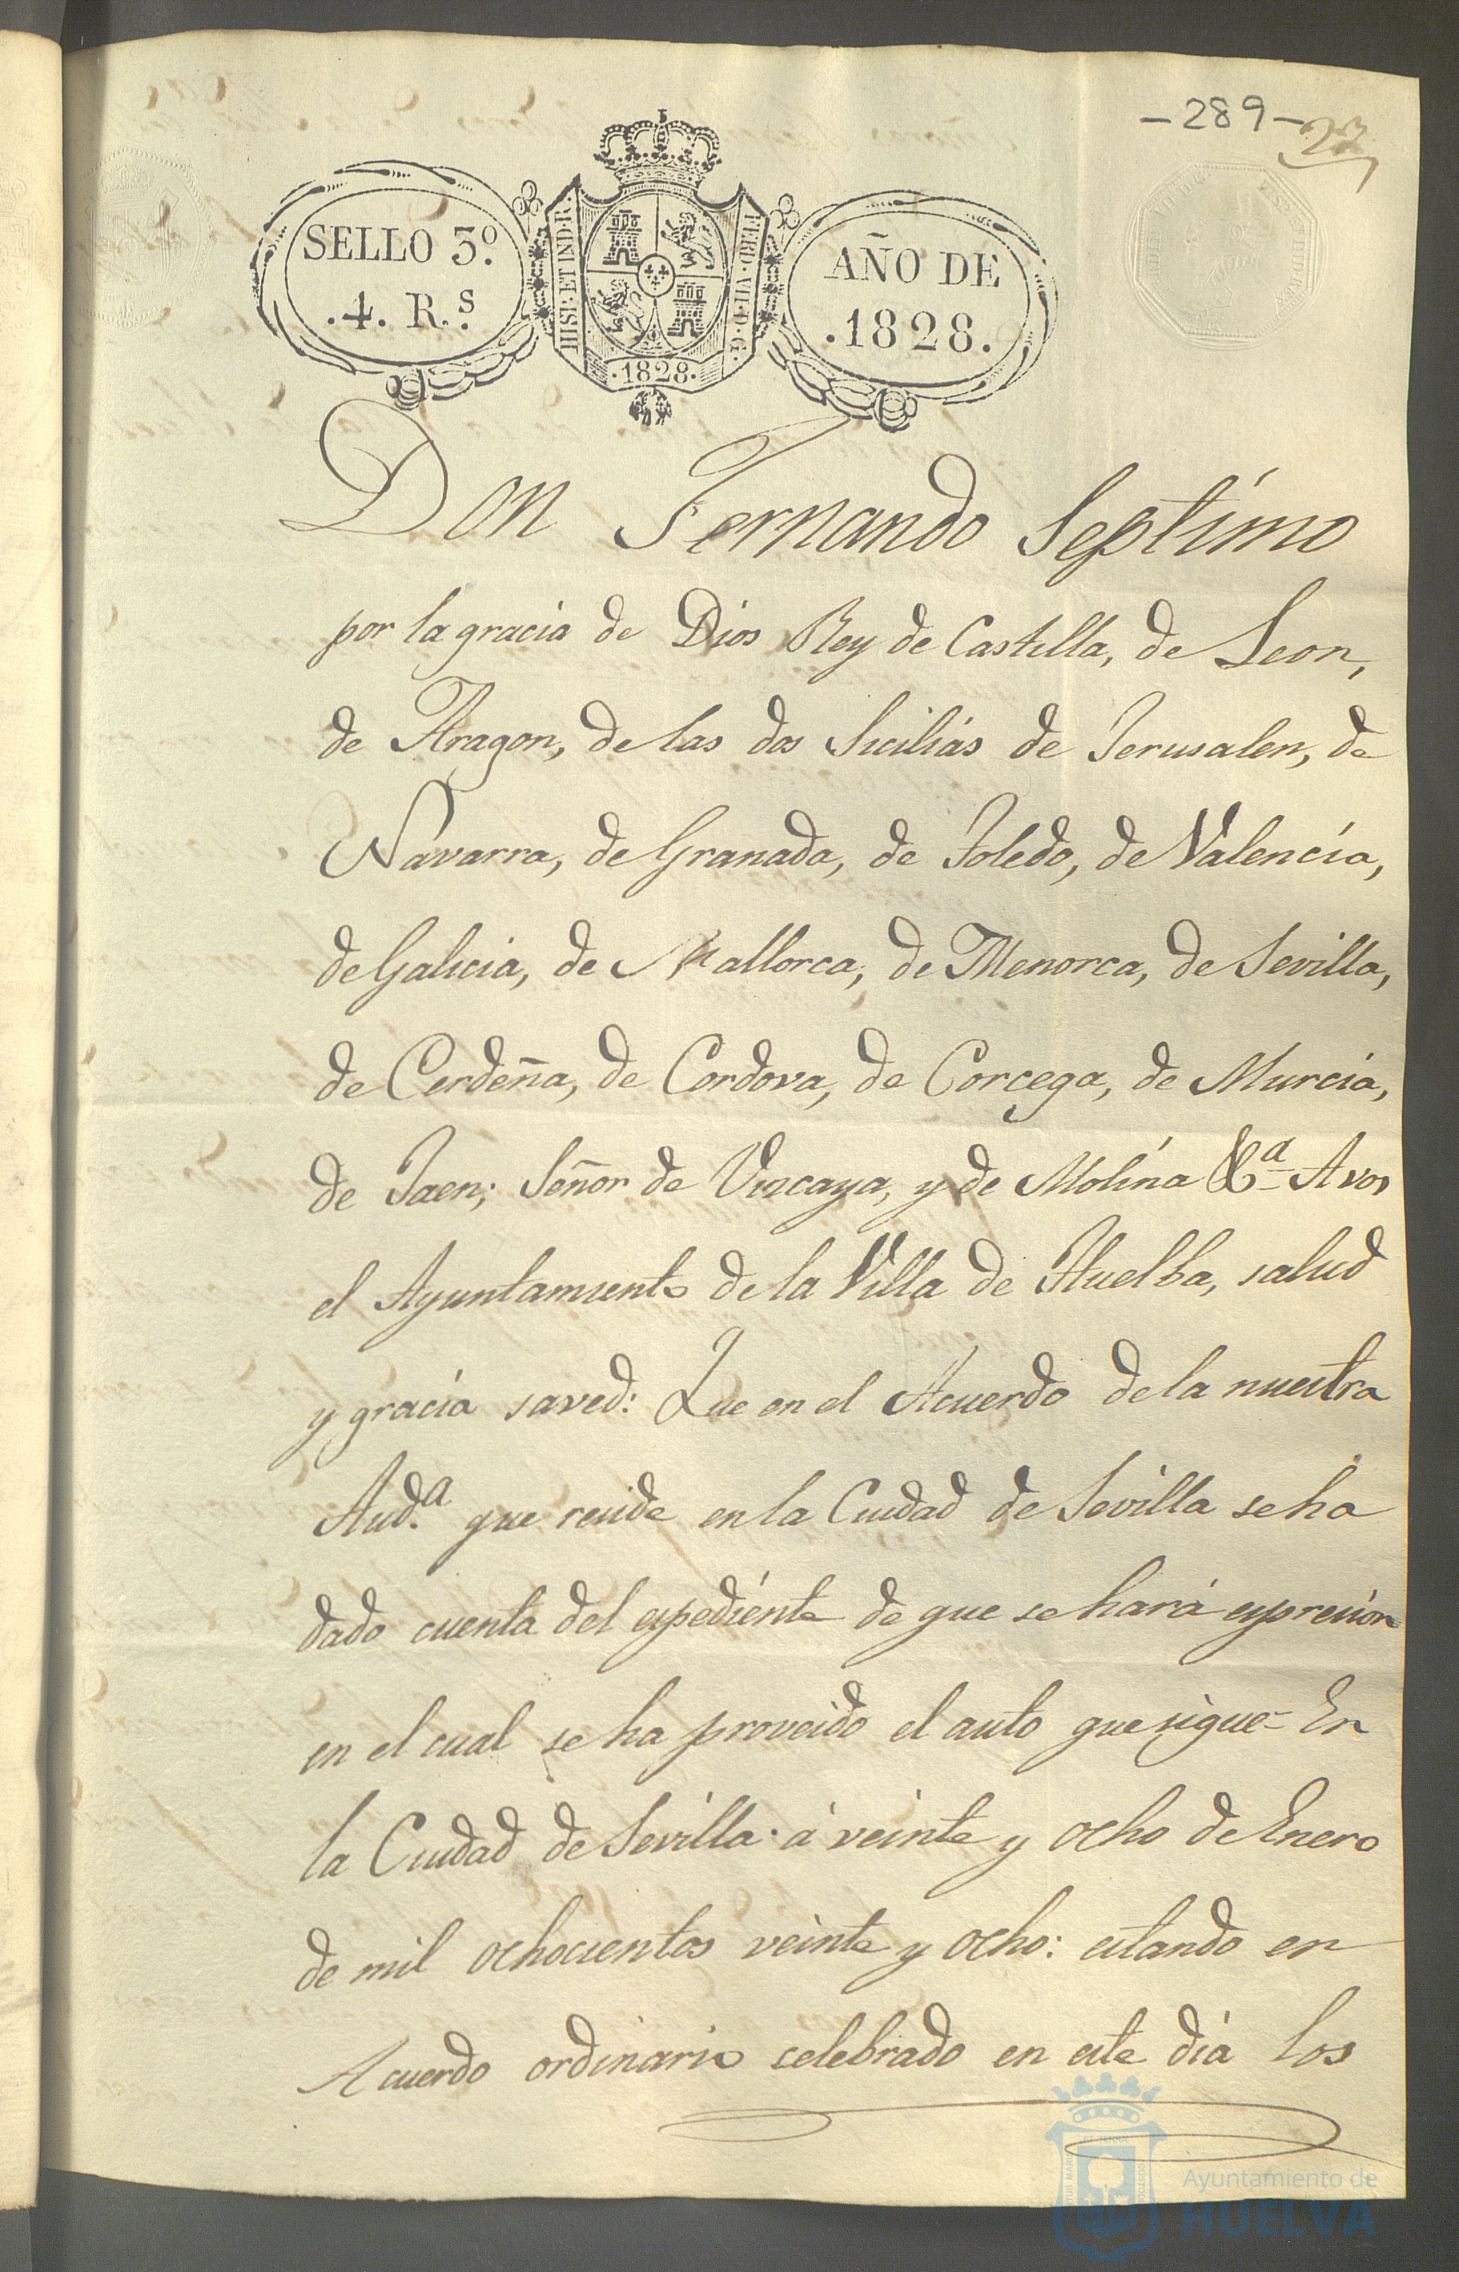 -289-
27
SELLO 3º
.4. R.s
HISP. ET IND. R.
FERD. VII. D. G.
.1828.
AÑO DE
.1828.
Don Fernando Septimo
por la gracia de Dios Rey de Castilla, de Leon,
de Aragon, de las dos Sicilias de Jerusalen, de
Navarra, de Granada, de Toledo, de Valencia,
de Galicia, de Mallorca, de Menorca, de Sevilla,
de Cerdeña, de Cordova, de Corcega, de Murcia,
de Jaen; Señor de Viscaya, y de Molina &ª A vos
el Ayuntamiento de la Villa de Huelba, salud
y gracia saved: Que en el Acuerdo de la nuestra
Aud.ª que reside en la Ciudad de Sevilla se ha
dado cuenta del espediente de que se hará espresion
en el cual se ha proveido el auto que sigue= En
la Ciudad de Sevilla á veinte y ocho de Enero
de mil ochocientos veinte y ocho: estando en
Acuerdo ordinario celebrado en este dia los
Ayuntamiento de
HUELVA